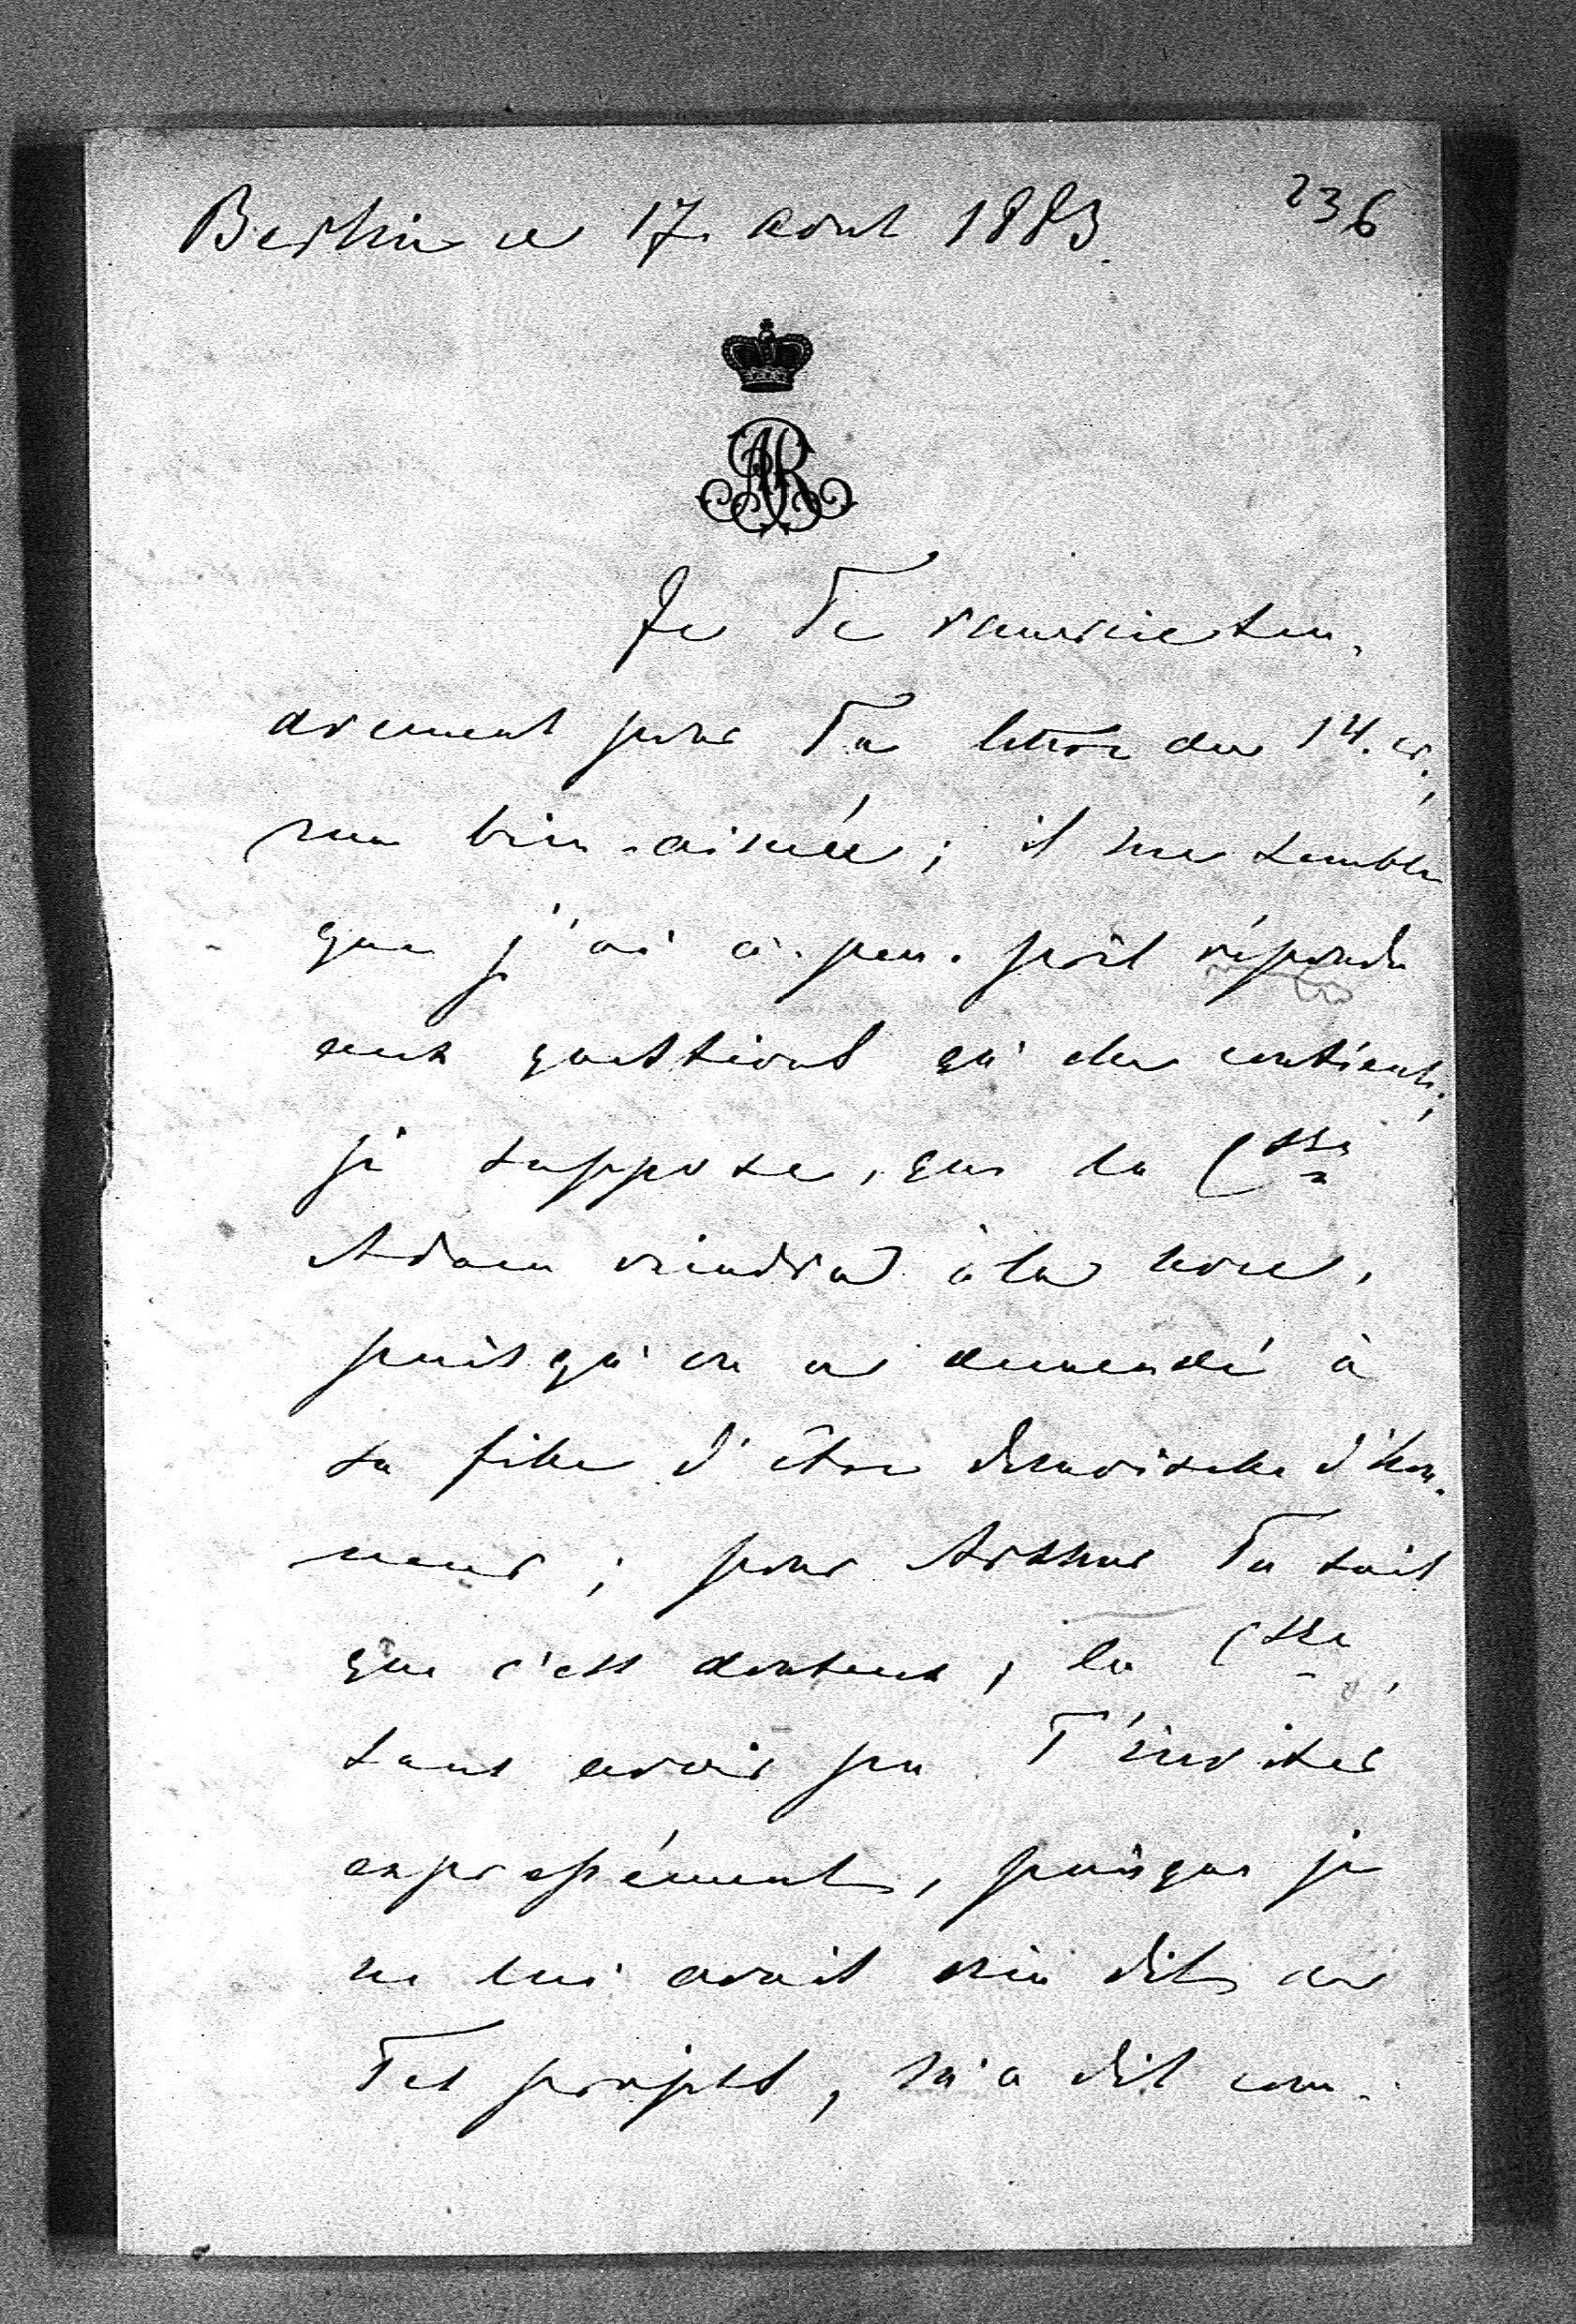 Berlin ce 17. aout 1883.
236
AR
Je Te remercie ten-
drement pour Ta lettre du 14. cr.,
ma bien-aimée; il me semble
que j'ai à-peu-près répondu
aux questions qu'elle contient;
je suppose, que la Csse
Adam viendra à la noce,
puisqu'on a demandé à
sa fille d'être demoiselle d'hon-
neur; pour Arthur Tu sais
que c'est douteux; la Csse,
sans avoir pu T'inviter
expressément, puisque je
ne lui avais rien dit de
Tes projets, m'a dit com-